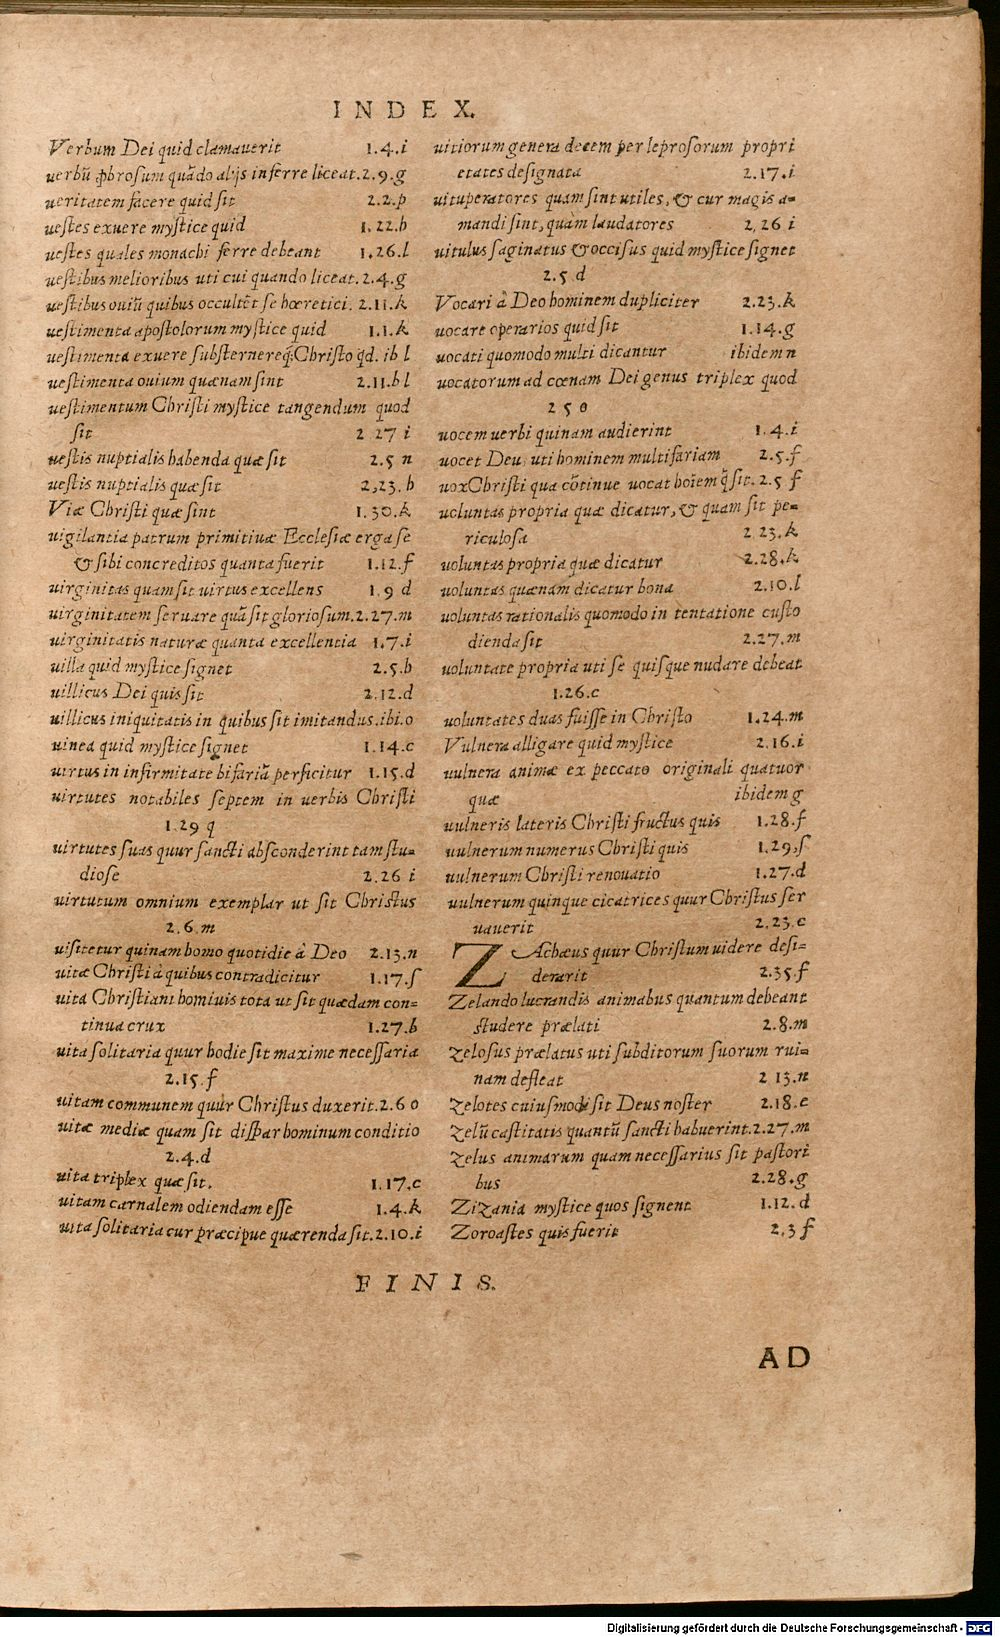 INDEX.
Verbum Dei quid clamauerit 1.4.i
uerbū ꝓbrosum quādo alijs inferre liceat. 2.9.g
ueritatem facere quid sit 2.2.p
uestes exuere mystice quid 1.22.h
uestes quales monachi ferre debeant 1.26.l
uestibus melioribus uti cui quando liceat. 2.4.g
uestibus ouiū quibus occultēt se hœretici. 2.11.k
uestimenta apostolorum mystice quid 1.1.k
uestimenta exuere substernereq́; Christo qd. ib l
uestimenta ouium quænam sint 2.11.h l
uestimentum Christi mystice tangendum quod
sit 2 27 i
uestis nuptialis habenda quæ sit 2.5 n
uestis nuptialis quæ sit 2,23.h
Viæ Christi quæ sint 1.30.k
uigilantia patrum primitiuæ Ecclesiæ erga se
& sibi concreditos quanta fuerit 1.12.f
uirginitas quam sit uirtus excellens 1.9 d
uirginitatem seruare quā sit gloriosum. 2.27.m
uirginitatis naturæ quanta excellentia 1.7.i
uilla quid mystice signet 2.5.b
uillicus Dei quis sit 2.12.d
uillicus iniquitatis in quibus sit imitandus. ibi.o
uinea quid mystice signet 1.14.c
uirtus in infirmitate bifariā perficitur 1.15.d
uirtutes notabiles septem in uerbis Christi
1.29 q
uirtutes suas quur sancti absconderint tam stu-
diose 2.26 i
uirtutum omnium exemplar ut sit Christus
2.6.m
uisitetur quinam homo quotidie à Deo 2.13.n
uitæ Christi à quibus contradicitur 1.17.s
uita Christiani hominis tota ut sit quædam con-
tinua crux 1.27.b
uita solitaria quur hodie sit maxime necessaria
2.15.f
uitam communem quur Christus duxerit. 2.6 o
uitæ mediæ quam sit dispar hominum conditio
2.4.d
uita triplex quæ sit. 1.17.c
uitam carnalem odiendam esse 1.4.k
uita solitaria cur præcipue quærenda sit. 2.10.i
uitiorum genera decem per leprosorum propri
etates designata 2.17.i
uituperatores quam sint utiles, & cur magis a-
mandi sint, quàm laudatores 2.26 i
uitulus saginatus & occisus quid mystice signet
2.5.d
Vocari à Deo hominem dupliciter 2.23.k
uocare operarios quid sit 1.14.g
uocati quomodo multi dicantur ibidem n
uocatorum ad cœnam Dei genus triplex quod
2 5 o
uocem uerbi quinam audierint 1.4.i
uocet Deu, uti hominem multifariam 2.5.f
uox Christi qua cōtinue uocat hoīem q̄ sit. 2.5 f
uoluntas propria quæ dicatur, & quam sit pe-
riculosa 2.23.k
uoluntas propria quæ dicatur 2.28.k
uoluntas quænam dicatur bona 2.10.l
uoluntas rationalis quomodo in tentatione custo
dienda sit 2.27.m
uoluntate propria uti se quisque nudare debeat
1.26.c
uoluntates duas fuisse in Christo 1.24.m
Vulnera alligare quid mystice 2.16.i
uulnera animæ ex peccato originali quatuor
quæ ibidem g
uulneris lateris Christi fructus quis 1.28.f
uulnerum numerus Christi quis 1.29,s
uulnerum Christi renouatio 1.27.d
uulnerum quinque cicatrices quur Christus ser
uauerit 2.23.c
ZAchæus quur Christum uidere desi-
derarit 2.35.f
Zelando lucrandis animabus quantum debeant
studere prælati 2.8.m
zelosus prælatus uti subditorum suorum rui-
nam defleat 2 13.n
zelotes cuiusmodi sit Deus noster 2.18.e
zelū castitatis quantū sancti habuerint. 2.27.m
zelus animarum quam necessarius sit pastori
bus 2.28.g
Zizania mystice quos signent 1.12.d
Zoroastes quis fuerit 2.3 f
FINIS.
AD
Digitalisierung gefördert durch die Deutsche Forschungsgemeinschaft - DFG